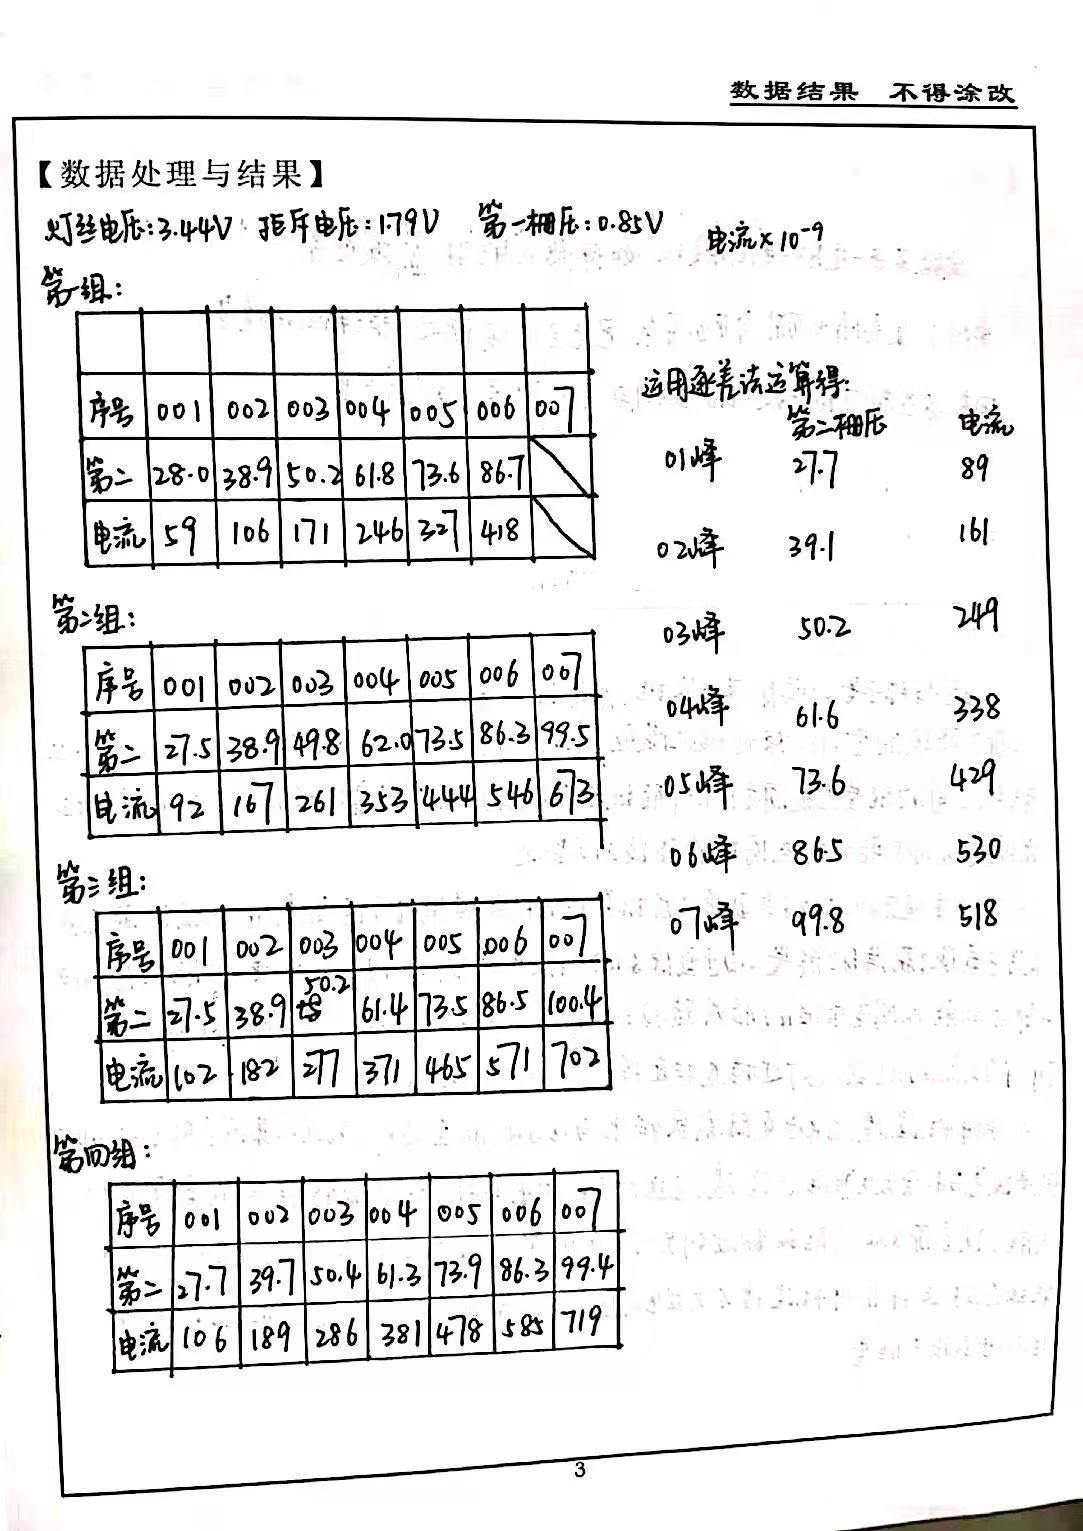 数据结果 不得涂改
【数据处理与结果】
灯丝电压:3.44V 拒斥电压:1.79V 第一栅压:0.85V 电流×10⁻⁹
第一组:
序号 001 002 003 004 005 006 007
第二 28.0 38.9 50.2 61.8 73.6 86.7
电流 59 106 171 246 327 418
第二组:
序号 001 002 003 004 005 006 007
第二 27.5 38.9 49.8 62.0 73.5 86.3 99.5
电流 92 167 261 353 444 546 673
第三组:
序号 001 002 003 004 005 006 007
第二 27.5 38.9 50.2 61.4 73.5 86.5 100.4
电流 102 182 277 371 465 571 702
第四组:
序号 001 002 003 004 005 006 007
第二 27.7 39.7 50.4 61.3 73.9 86.3 99.4
电流 106 189 286 381 478 585 719
运用逐差法运算得:
第二栅压 电流
01峰 27.7 89
02峰 39.1 161
03峰 50.2 249
04峰 61.6 338
05峰 73.6 429
06峰 86.5 530
07峰 99.8 518
3